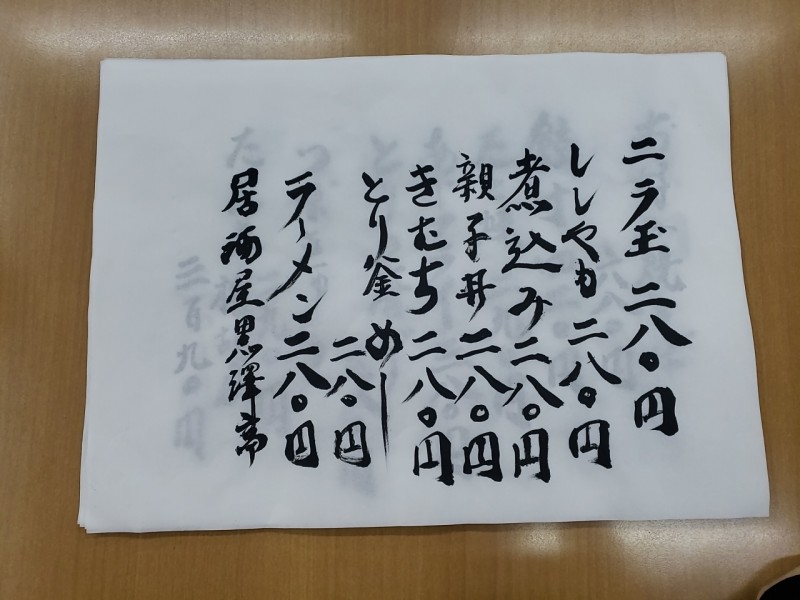 ニラ玉 二八〇円
ししゃも 二八〇円
煮込み 二八〇円
親子丼 二八〇円
きむち 二八〇円
とり釜めし
二八〇円
ラーメン 二八〇円
居酒屋黒澤
三百九〇円